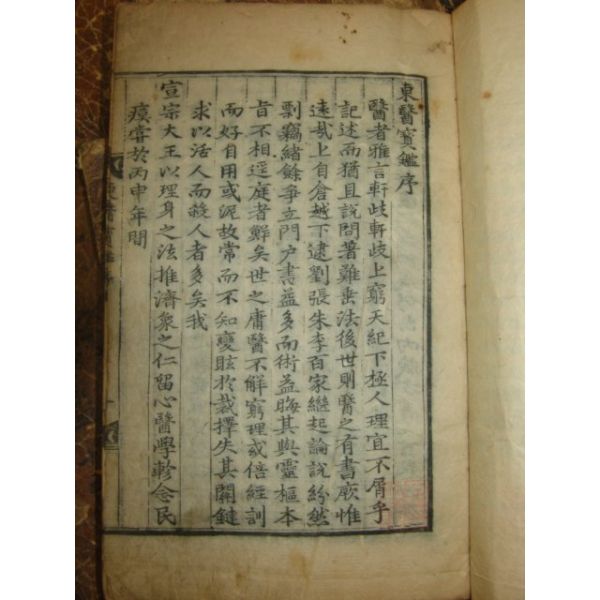 東醫寶鑑序
醫者雅言軒歧軒歧上窮天紀下極人理宜不屑乎
記述而猶且說問著難垂法後世則醫之有書厥惟
遠哉上自倉越下逮劉張朱李百家繼起論說紛然
剽竊緖餘爭立門户書益多而術益晦其與靈樞本
旨不相逕庭者鮮矣世之庸醫不解窮理或倍經訓
而好自用或泥故常而不知變眩於裁擇失其關鍵
求以活人而殺人者多矣我
宣宗大王以理身之法推濟衆之仁留心醫學軫念民
瘼嘗於丙申年間